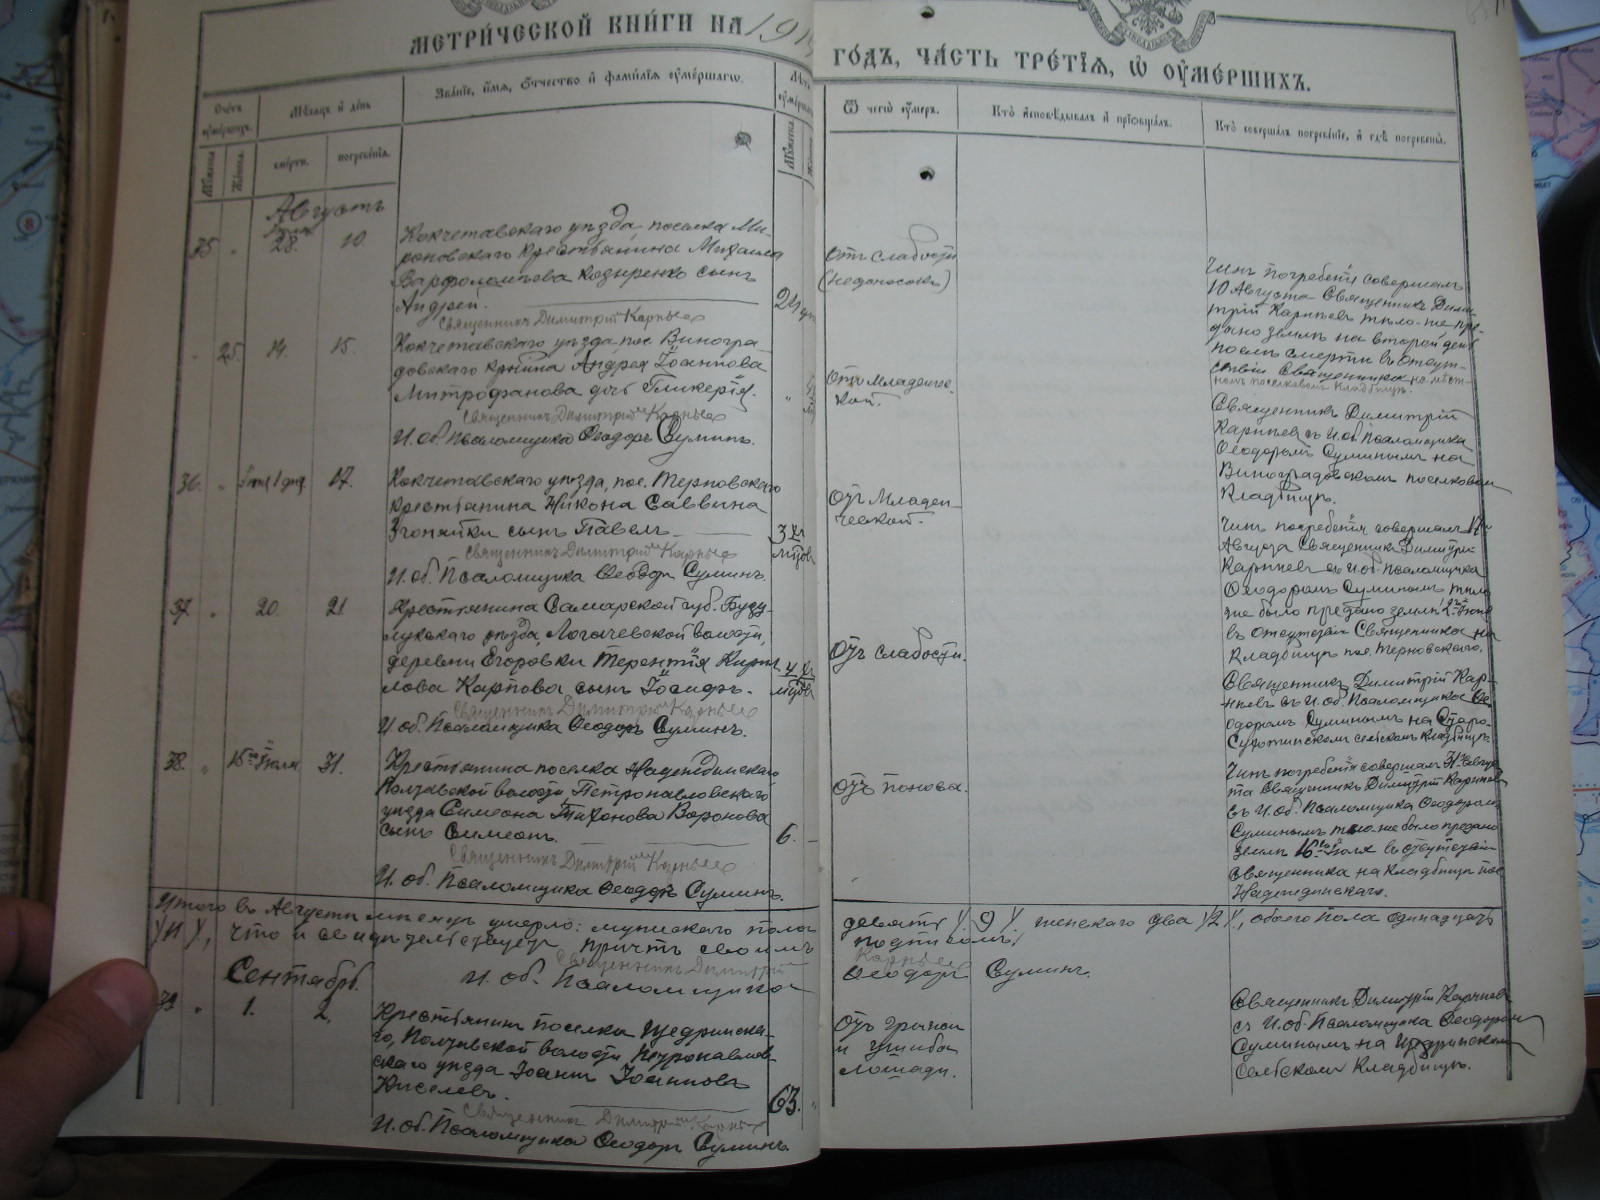 МЕТРИ́ЧЕСКОЙ КНИ́ГИ НА 191
ГО́ДЪ, ЧА́СТЬ ТРЕ́ТІѦ, Ѡ ОУ҆МЕ́РШИХЪ.
Сче́тъ оу҆ме́ршихъ.
Мѣ́сѧцъ и҆ де́нь
Зва́ніе, и҆́мѧ, ѻ҆́тчество и҆ фами́лїѧ оу҆ме́ршагѡ.
Ѿ чегѡ̀ оу҆́меръ.
Кто̀ и҆сповѣ́дывалъ и҆ прїѡбща́лъ.
Кто̀ соверша́лъ погребе́нїе, и҆ гдѣ̀ погребены̀.
Мꙋ́жеска.
Же́нска.
сме́рти.
погребе́нїѧ.
Мꙋ́жеска
Августъ
35 „ Іюля 28. 10.
Кокчетавскаго уѣзда, поселка Ми-
роновскаго крестьянина Михаила
Варфоломѣева Козыренко сынъ
Андрей.
Священникъ Димитрій Карпьев
отъ слабости
(недоносокъ)
Чинъ погребенія совершалъ
10 Августа Священникъ Дими-
трій Карпьевъ тѣло-же пре-
дано землѣ на второй день
послѣ смерти въ отсут-
ствіи Священника на мѣст-
номъ поселковомъ кладбищѣ.
„ 25. 14. 15.
Кокчетавскаго уѣзда, пос. Виногра-
довскаго кр-нина Андрея Іоаннова
Митрофанова дочь Гликерія.
Священникъ Димитрій Карпьев
И. об. Псаломщика Ѳеодоръ Суминъ.
отъ Младенче-
ской.
Священникъ Димитрій
Карпьев съ И. об. Псаломщика
Ѳеодоромъ Суминымъ на
Виноградовскомъ поселковом
Кладбищѣ.
36. „ 17.
Кокчетавскаго уѣзда, пос. Терновскаго
крестьянина Никона Саввина
сынъ Павелъ.
Священникъ Димитрій Карпьев
И. об. Псаломщика Ѳеодоръ Суминъ.
3 мѣсяца
отъ Младен-
ческой.
Чинъ погребенія совершалъ 17
Августа Священникъ Димитрій
Карпьевъ съ И. об. Псаломщика
Ѳеодоромъ Суминымъ тѣло
же было предано землѣ
въ отсутствіи Священника на
Кладбищѣ пос. Терновскаго.
37. „ 20. 21.
Крестьянина Самарской губ. Бузу-
лукскаго уѣзда, Логачевской волости,
деревни Егоровки Терентія Кирил-
лова Карпова сынъ Іосифъ.
Священникъ Димитрій Карпьев
И. об. Псаломщика Ѳеодоръ Суминъ.
отъ слабости.
Священникъ Димитрій Кар-
пьевъ съ И. об. Псаломщика Ѳе-
одоромъ Суминымъ на
сельском Кладбищѣ.
38. „ 15го Іюля 31.
Крестьянина поселка Надеждинскаго
Полтавской волости Петропавловскаго
уѣзда Симеона Тихонова Воронова
сынъ Симеонъ.
Священникъ Димитрій Карпьев
И. об. Псаломщика Ѳеодоръ Суминъ.
6. –
отъ поноса.
Чинъ погребенія совершалъ 31 Авгус-
та Священникъ Димитрій Карпьев
съ И. об. Псаломщика Ѳеодоромъ
Суминымъ тѣло-же было предано
землѣ 16го Іюля въ отсутствіи
Священника на Кладбищѣ пос
Надеждинскаго.
Итого въ Августѣ мѣсяцѣ умерло: мужскаго пола девять /9/, женскаго два /2/, обоего пола одинадцать
/11/, что и свидѣтельствуетъ причтъ своимъ подписомъ:
Священникъ Димитрій Карпьев
И. об. Псаломщика Ѳеодоръ Суминъ.
Сентябрь.
39 „ 1. 2.
Крестьянинъ поселка Щедринска-
го, Полтавской волости Петропавлов-
скаго уѣзда Іоаннъ Іоанновъ
Киселевъ.
Священникъ Димитрій Карпьев
И. об. Псаломщика Ѳеодоръ Суминъ.
63.
отъ грыжи
и ушиба
лошади.
Священникъ Димитрій Карпьев
съ И. об. Псаломщика Ѳеодором
Суминымъ на Щедринском
Сельском Кладбищѣ.